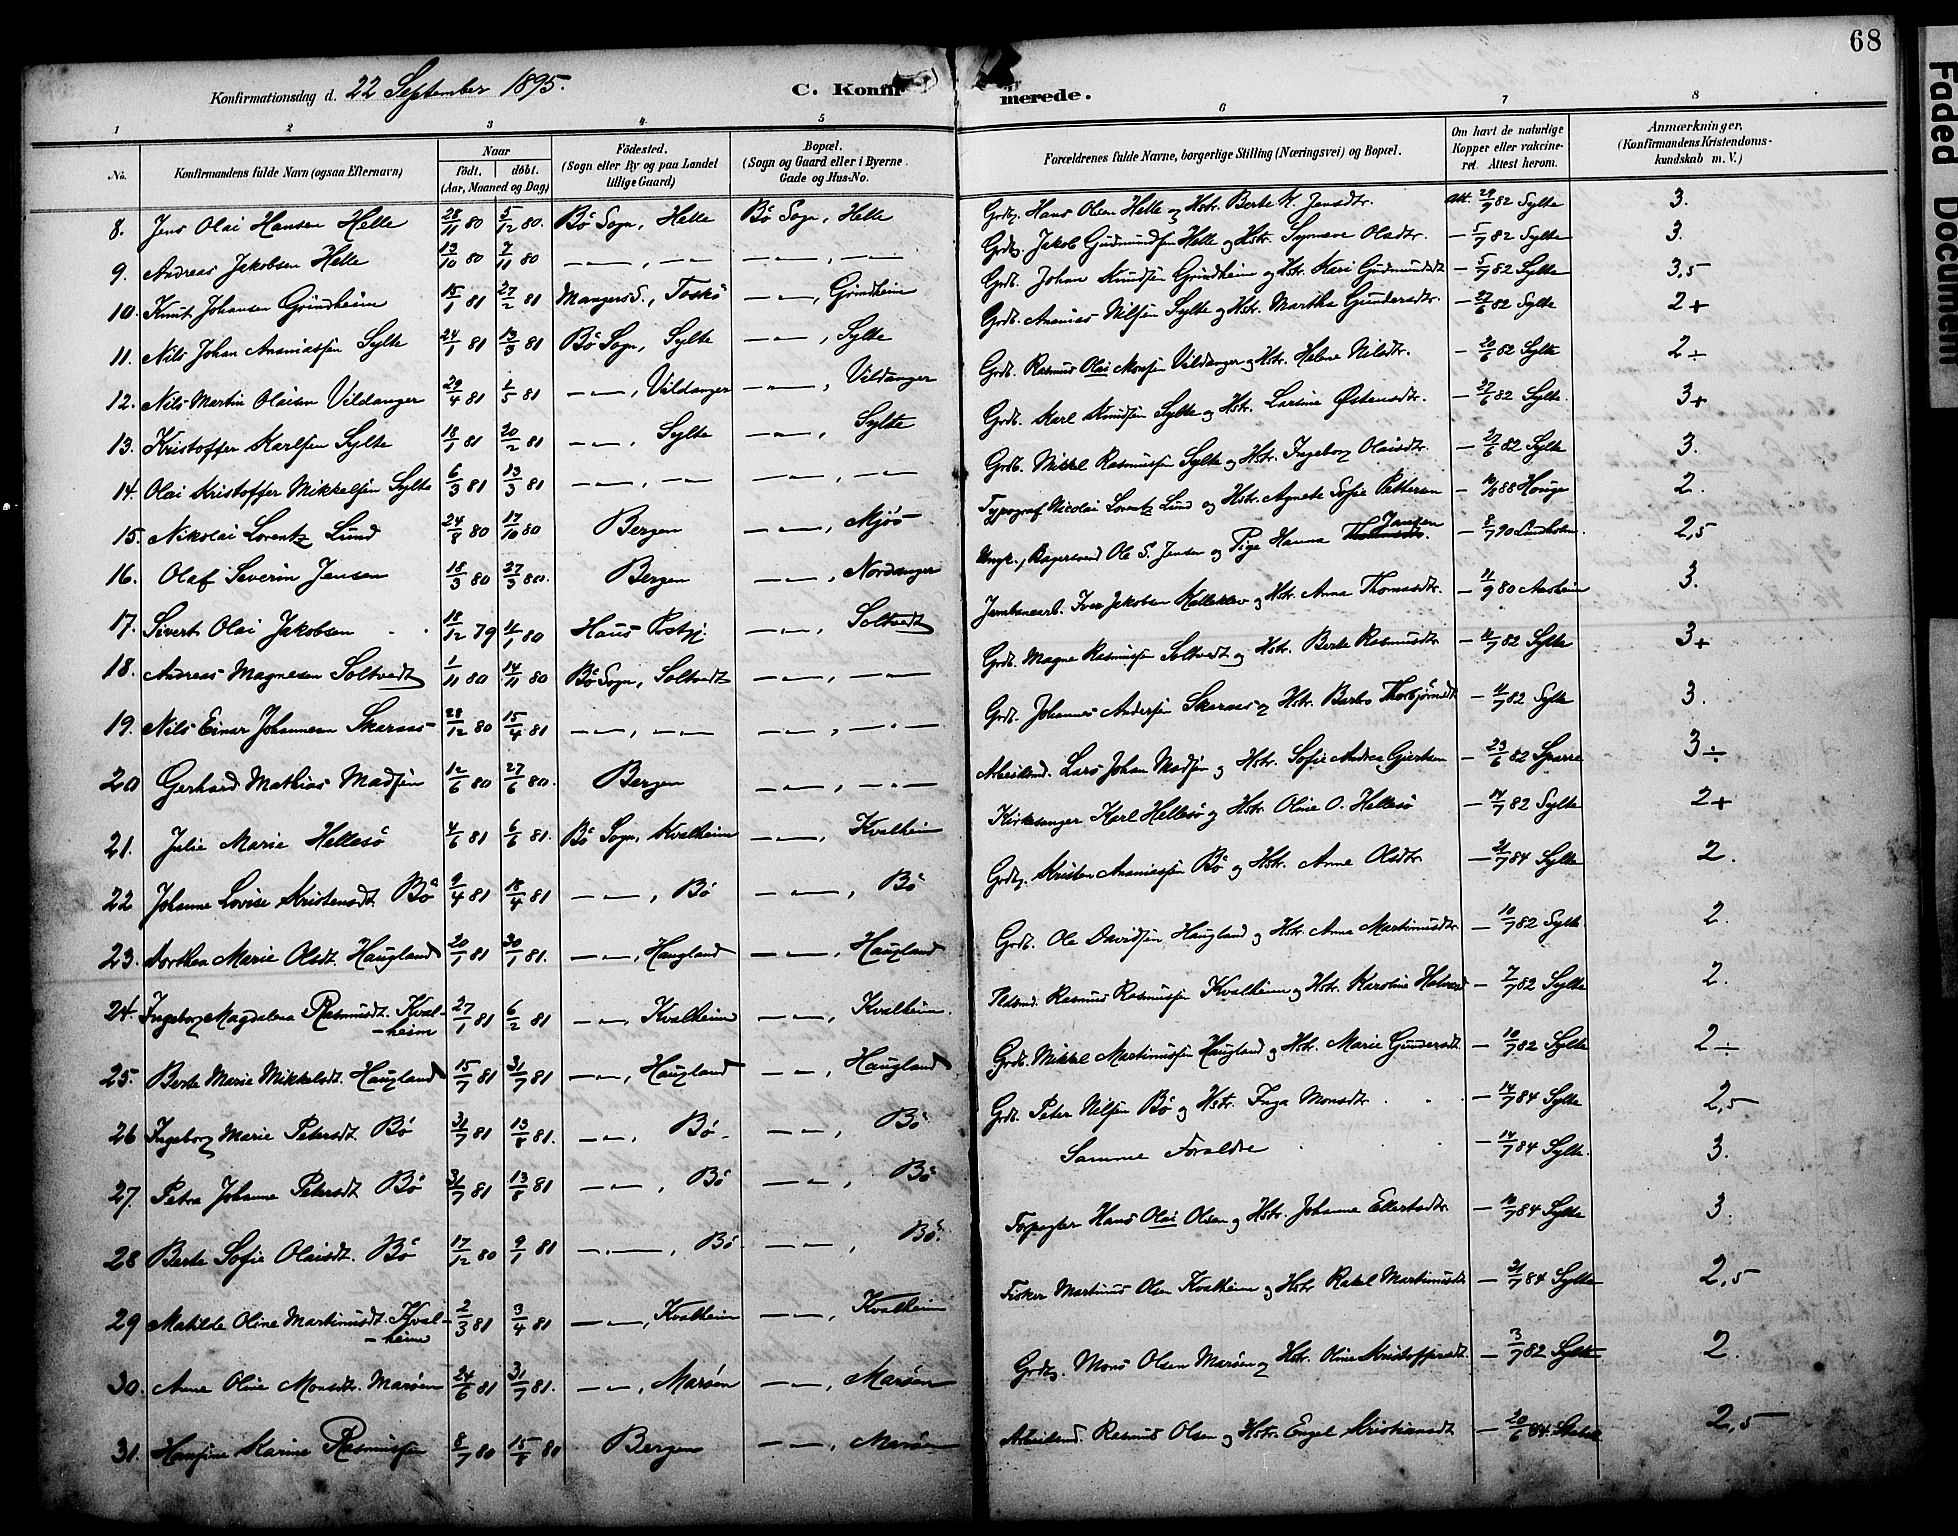 68
Konfirmationsdag d. 22 September 1895.
C. Konfirmerede.
1 2 3 4. 5 6 7 8
No.
Konfirmandens fulde Navn (ogsaa Efternavn)
Naar
födt. döbt.
(Aar, Maaned og Dag)
Födested.
(Sogn eller By og paa Landet
tillige Gaard)
Bopæl.
(Sogn og Gaard eller i Byerne
Gade og Hus-No.
Forældrenes fulde Navne, borgerlige Stilling (Næringsvei) og Bopæl.
Om havt de naturlige
Kopper eller vakcine-
ret. Attest herom.
Anmærkninger.
(Konfirmandens Kristendoms-
kundskab m. V.)
8. Jens Olai Hansen Helle 28/11 80 5/12 80. Bö Sogn, Helle Bö Sogn, Helle Grdbg. Hans Olsen Helle og Hstr. Berte K. Jensdtr. Att. 29/7 82 Sylte 3.
9. Andreas Jakobsen Helle 13/10 80 7/11 80 —„—, —„— —„—, —„— Grdbg. Jakob Gudmundsen Helle og Hstr. Synneve Olsdtr. — 5/7 82 Sylte 3.
10. Knut Johansen Grindheim 15/1 81 27/2 81 Mangers S., Toskö —„—, Grindheim Grdb. Johan Knudsen Grindheim og Hstr. Kari Gudmundsdt — 5/7 82 Sylte 3,5
11. Nils Johan Ananiassen Sylte 24/1 81 13/3 81 Bö Sogn, Sylte —„—, Sylte Grdb. Ananias Nilsen Sylte og Hstr. Martha Gundersdtr. — 27/6 82 Sylte 2+
12. Nils Martin Olaisen Vildanger 29/4 81 1/5 81 —„—, Vildanger —„—, Vildanger Grdb. Rasmus Olai Monsen Vildanger og Hstr. Helene Nilsdtr. — 20/6 82 Sylte 2÷
13. Kristoffer Karlsen Sylte 18/1 81 20/2 81 —„—, Sylte —„—, Sylte Grdb. Karl Knudsen Sylte og Hstr. Larsine Østensdtr. — 27/6 82 Sylte. 3+
14. Olai Kristoffer Mikkelsen Sylte 6/3 81 13/3 81 —„—, —„— —„—, —„— Grdb. Mikkel Rasmussen Sylte og Hstr. Ingeborg Olaisdtr. — 27/6 82 Sylte 3.
15. Nikolai Lorentz Lund 24/8 80 17/10 80 Bergen —„—, Mjös Typograf Nicolai Lorentz Lund og Hstr. Agnete Sofie Petersen — 88 Houge 2.
16. Olaf Severin Jensen 18/3 80 27/3 80. Bergen —„—, Nordanger Ungk., Bagersvend Ole S. Jensen og Pige Hanna Jansen — 8/7 90 Lindholm. 2,5
17. Sivert Olai Jakobsen 18/12 79 4/1 80 Haus Prstgj. —„—, Soltvedt Jernbanearb. Iver Jakobsen Helleklev og Hstr. Anna Thomasdtr. — 11/9 80 Aasheim 3.
18. Andreas Magnesen Soltvedt 1/11 80 14/11 80 Bö Sogn, Soltvedt —„—, —„— Grdb. Magne Rasmussen Soltvedt og Hstr. Berte Rasmusdtr — 4/7 82 Sylte 3+
19. Nils Einar Johannesen Skarsas 28/12 80 15/4 81 —„—, —„— —„—, —„— Grdb. Johannes Andersen Skarsas og Hstr. Barbro Thorbjörnsdt — 4/7 82 Sylte 3.
20 Gerhard Mathias Madsen 12/6 80 27/6 80. Bergen —„—, —„— Arbeidsmd. Lars Johan Madsen og Hstr. Sofie Andrea Giertsen — 23/6 82 Sparre 3÷
21. Julie Marie Hellesö 4/6 81 6/6 81. Bö Sogn, Kvalheim —„—, Kvalheim Kirkesanger Karl Hellesö og Hstr. Oline O. Hellesö — 14/7 82 Sylte 2+
22 Johanne Lovise Kristensdt. Bö 9/4 81 18/4 81 —„—, Bö —„—, Bö Grdbg. Kristen Ananiassen Bö og Hstr. Anne Olsdtr — 21/7 84 Sylte 2.
23. Dorthea Marie Olsdt. Haugland 20/1 81 30/1 81. —„—, Haugland —„—, Haugland Grdb. Ole Davidsen Haugland og Hstr. Anna Martinusdtr — 10/7 82 Sylte. 2.
24. Ingeborg Magdalena Rasmusdt. Kval-
-heim 27/1 81 6/2 81 —„—, Kvalheim —„—, Kvalheim. Rasmus Rasmussen Kvalheim og Hstr. Karoline — 7/7 82 Sylte 2.
25. Berte Marie Mikkelsdt. Haugland 15/7 81 31/7 81 —„—, Haugland —„—, Haugland Grdb. Mikkel Martinussen Haugland og Hstr. Marie Gundersdt. — 10/7 82 Sylte 2÷
26 Ingeborg Marie Petersdt. Bö 31/7 81 13/8 81. —„—, Bö. —„—, Bö Grdb. Peter Nilsen Bö og Hstr. Inga Monsdtr. — 14/7 84 Sylte 2,5
27. Petra Johanne Petersdt Bö 31/7 81 13/8 81 —„—, Bö —„—, Bö Samme Foraldre — 14/7 84 Sylte. 3.
28 Berte Sofie Olaisdt. Bö 17/12 80 9/1 81 —„—, Bö —„—, Bö. Forpagter Hans Olai Olsen og Hstr. Johanne Ellertsdtr — 10/7 84 Sylte 3.
29 Matilde Oline Martinusdt. Kval-
-heim 2/3 81 3/4 81 —„—, Kvalheim —„—, Kvalheim Fisker Martinus Olsen Kvalheim og Hstr Rakel Martinusdt — 21/7 84 Sylte 2,5
30. Anne Oline Monsdt. Marsen 24/6 81 31/7 81. —„—, Marsen —„—, Marsen Grdbg. Mons Olsen Marsen og Hstr. Oline Kristoffersdt. — 3/7 82 Sylte 2.
31. Hansine Karine Rasmussen 8/7 80 15/8 80 Bergen —„—, Marsen Arbeidsmd. Rasmus Olsen og Hstr. Engel Kristiansdt — 20/6 84 2,5
Faded Document